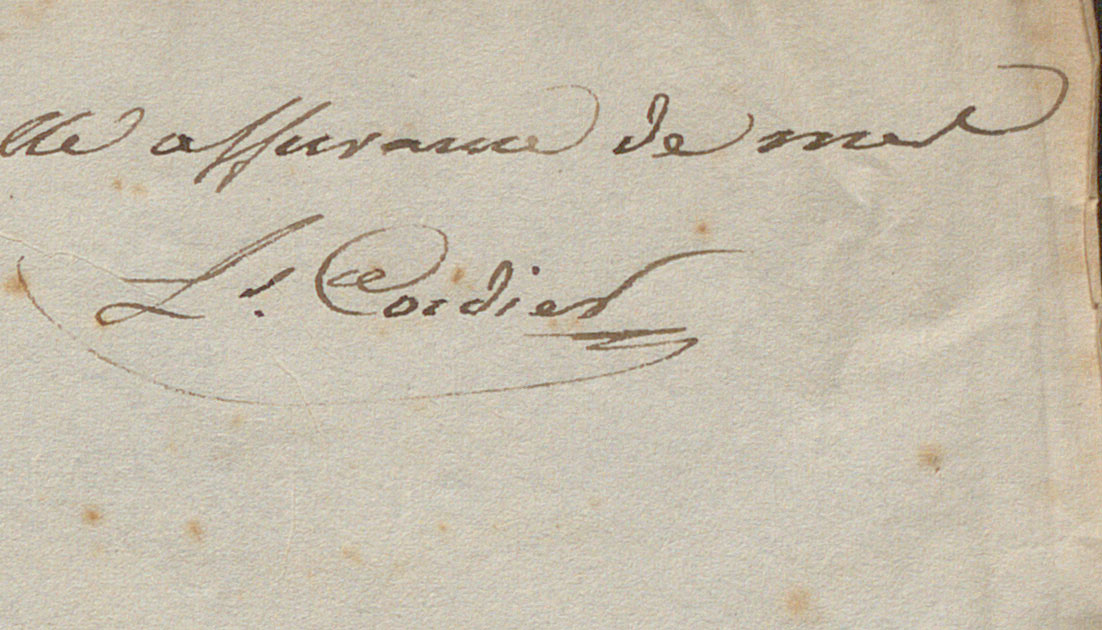 lle assurance de mes
L.s Cordier